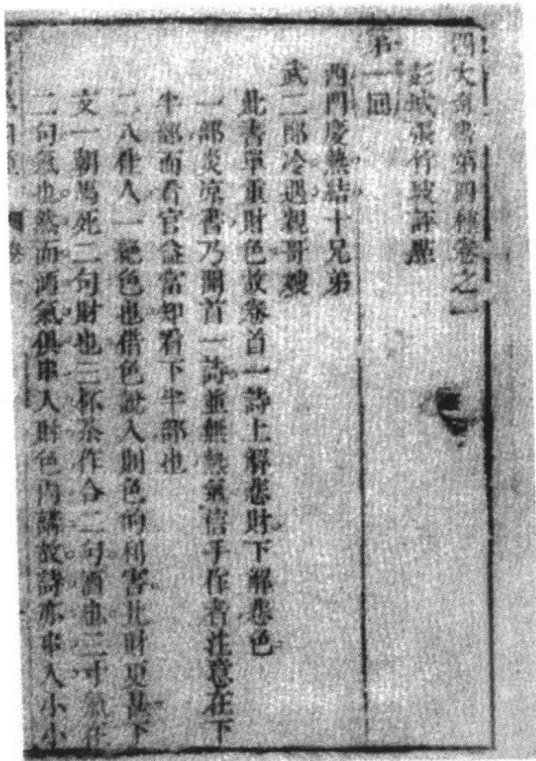 四大奇書第四種卷之一
彭城張竹坡評點
第一回
西門慶熱結十兄弟
武二郎冷遇親哥嫂
此書單重財色故卷首一詩上解悲財下解悲色
一部炎凉書乃開首一詩並無熱氣信乎作者注意在下
半部而看官益當知看下半部也
二八佳人一絕色也借色說入則色的利害比財更甚下
文一朝馬死二句財也三杯茶作合二句酒也三寸氣在
二句氣也然而酒氣俱串入財色內講故詩亦串入小小